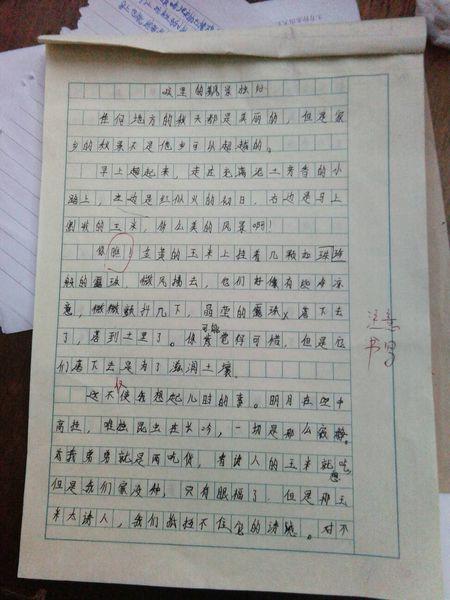 这里的风景独好
任何地方的秋天都是美丽的，但是家
乡的秋景不是他乡可以超越的。
早上起来，走过充满泥土芳香的小
路上，左边是红似火的初日，右边是马上
的玉米，多么美的风景啊！
你瞧！金黄的玉米上挂着几颗如珠
般的露珠，微风拂去，它们好像有些
意，微微颤抖几下，晶莹的露珠落下去
了，落到土里了。你可能觉得可惜，但是它
们落下去是为了滋润土壤。
这不仅使我想起儿时的事。明月在空中
高挂，唯独昆虫在长吟，一切是那么寂静。
我舅舅就是两吃货，看诱人的玉米就想吃
但是我们家没种，只有眼福了，但是那玉
米太诱人，我们抵挡不住它的诱惑。对不
注意
书写